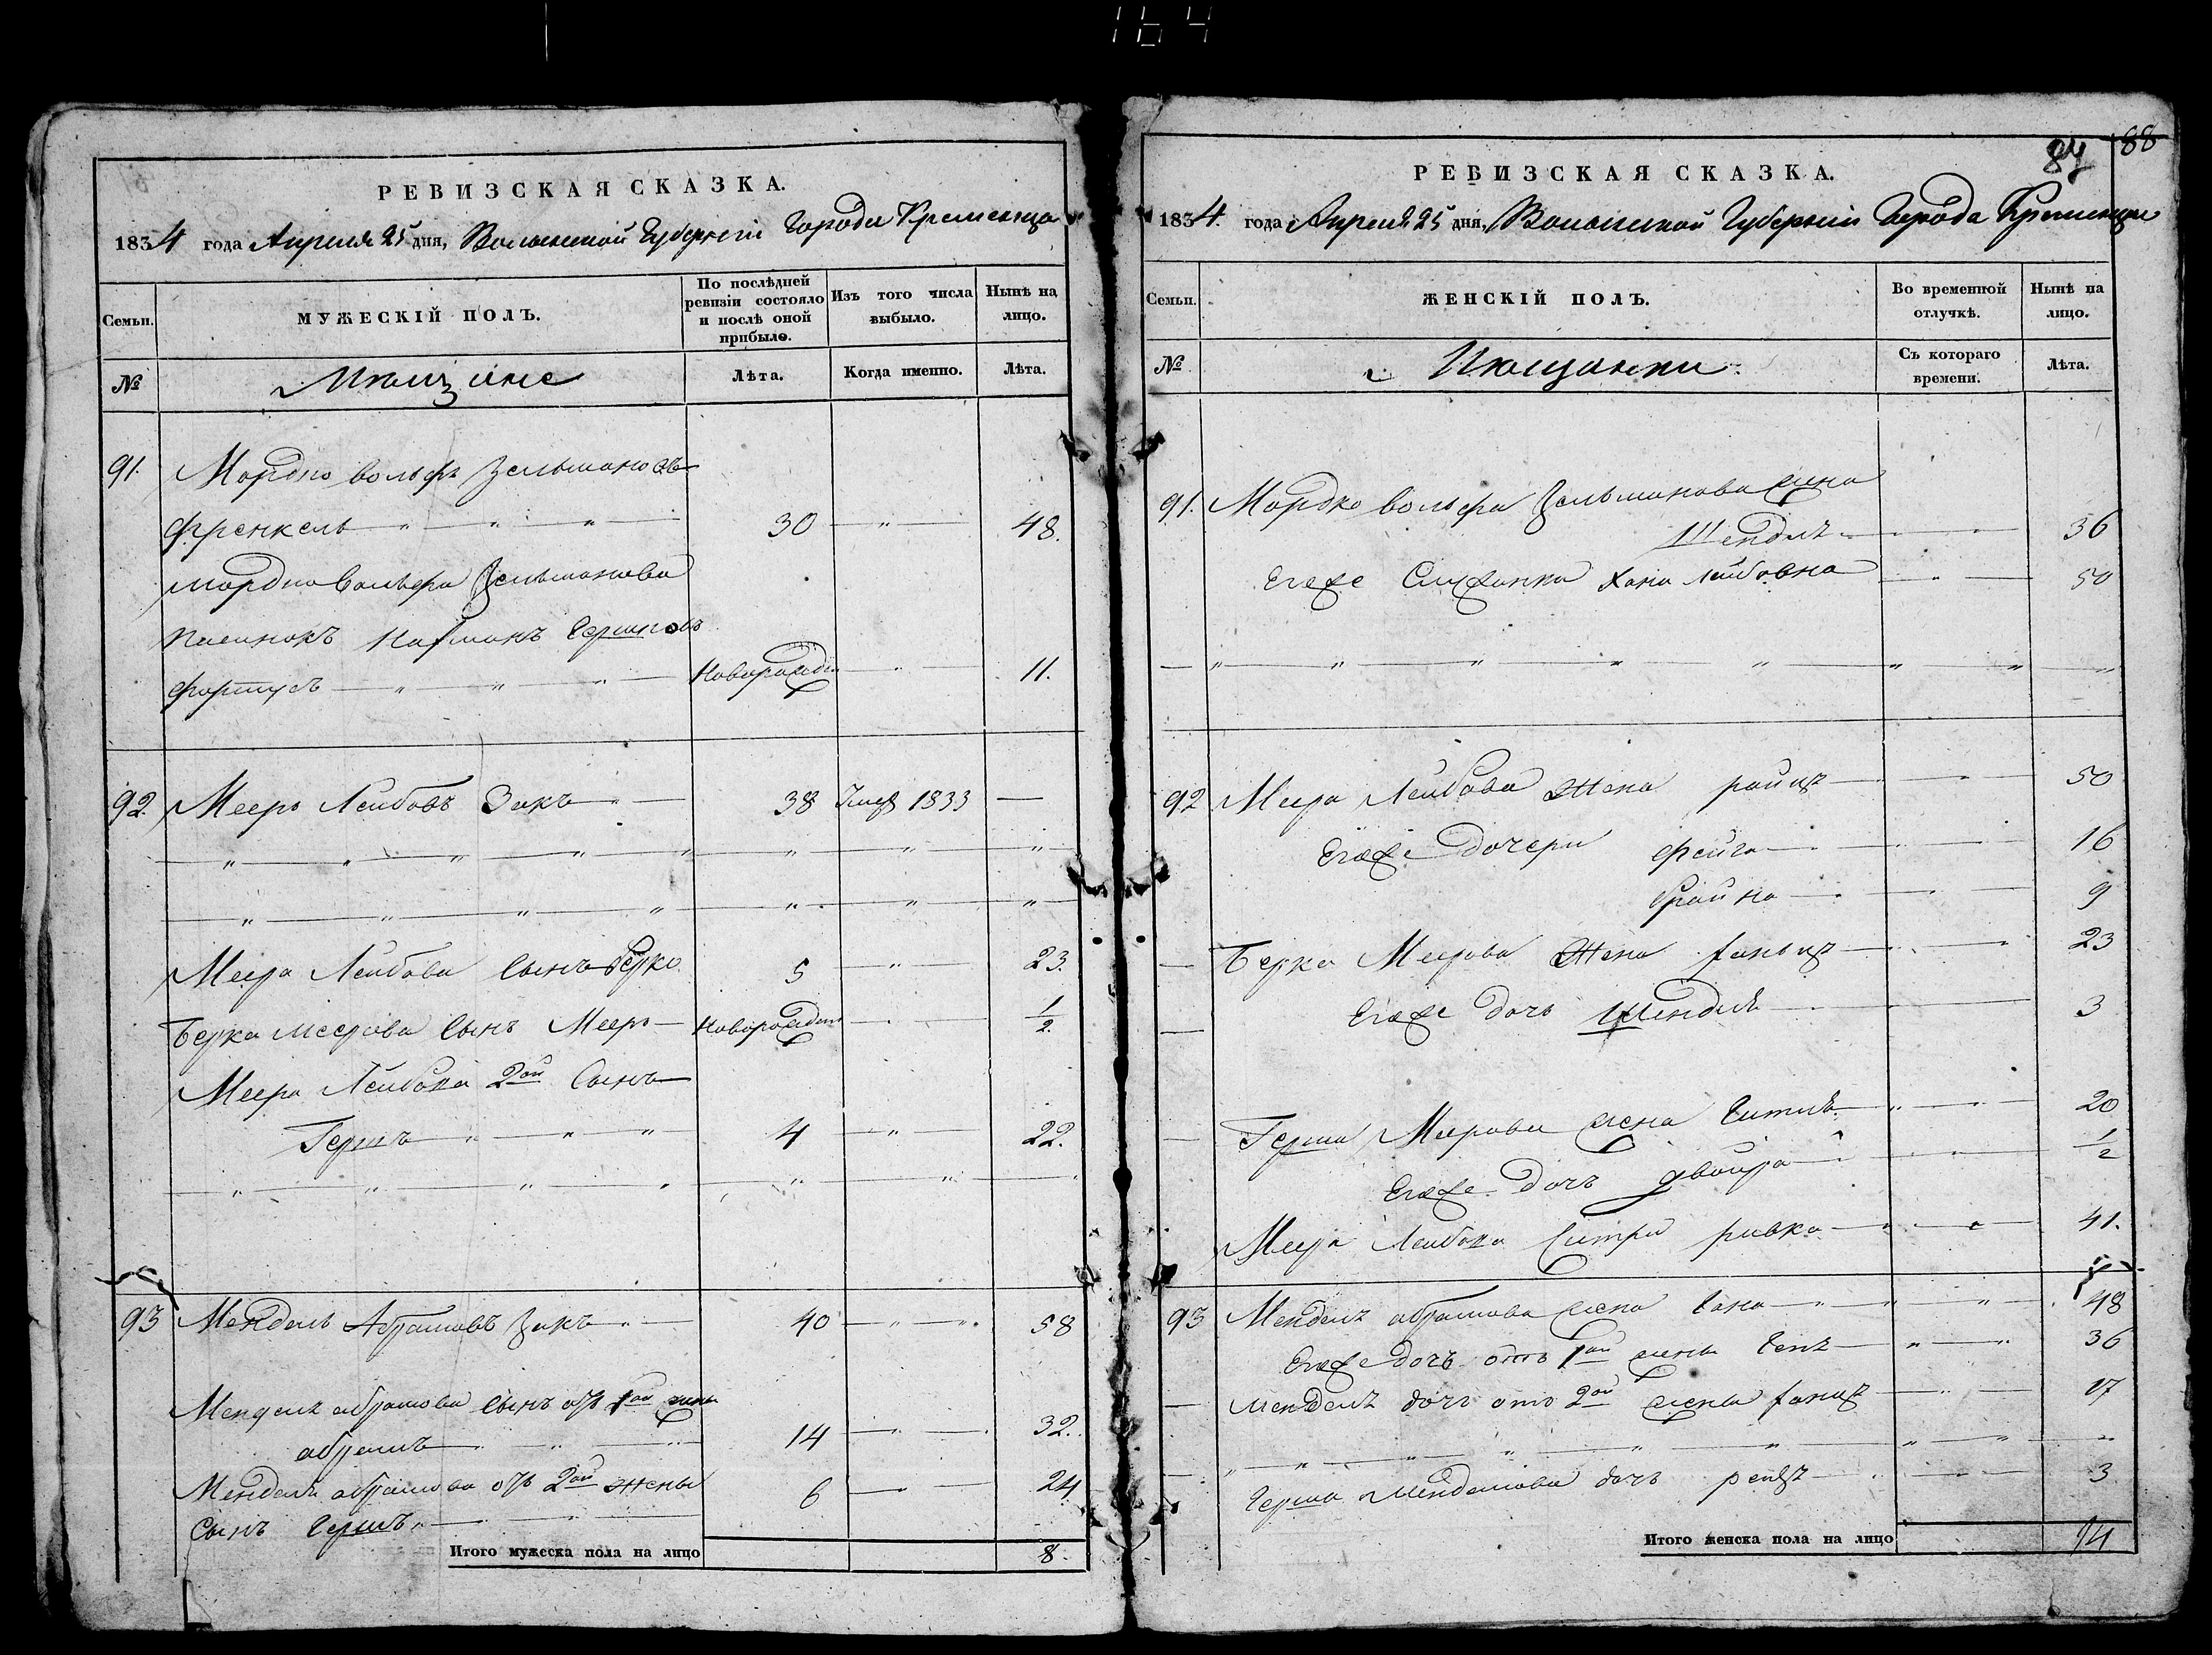 164
РЕВИЗСКАЯ СКАЗКА.
1834 года Апреля 25 дня, Волынской Губернiи Города Кременца
Семьи.
МУЖЕСКIЙ ПОЛЪ.
По послѣдней ревизiи состояло и послѣ оной прибыло.
Изъ того числа выбыло.
Нынѣ на лицо.
№
Мещане
Лѣта.
Когда именно.
Лѣта.
91. Мордко Вольфъ Зельмановъ
Френкель — " — " — " — 30 — " — 48.
Мордка Вольфа Зельманова
Пасинокъ Нахманъ Гершковъ
Фортусъ — " — " — " — Новорожден — " — 11.
92. Мееръ Лейбовъ Закъ — " — 38 Умер 1833 —
— " — " — " — " — " — " — " — "
— " — " — " — " — " — " — "
Меера Лейбова Сынъ Берко 5 — " — 23.
Берка Меерова Сынъ Мееръ — Новорожден — " — 1/2.
Меера Лейбова 2ой Сынъ —
Гершъ — " — " — " 4 — " — 22.
— " — " — " — " — " — " —
93 Мендель Абрамовъ Закъ — " — 40 — " — " 58
Мендель абрамова Сынъ отъ 1ой жены
абрамъ — " — " — 14 — " — 32.
Мендель абрамова отъ 2ой жены 6 — " — 24
Сынъ Гершъ " — " —
Итого мужеска пола на лицо 8.
87
88
РЕВИЗСКАЯ СКАЗКА.
1834. года Апреля 25 дня, Волынской Губернiи Города Кременца
Семьи.
ЖЕНСКIЙ ПОЛЪ.
Во временной отлучкѣ.
Нынѣ на лицо.
№
Мещанки
Съ котораго времени.
Лѣта.
91. Мордко Вольфа Зельманова жена
Шендлъ — " — 36
Егоже Служанка Хана Лейбовна — " — 50
— " — " — " — " — " — " — " — "
92 Меера Лейбова Жена райця — " — 50
Егоже дочери Фейга — " — 16
Фрайна — " — 9
— Берка Меерова Жена ханьця — " — 23
— Егоже дочь Шендля — " — 3
— Герша Меерова жена Гитля — " — 20
Егоже дочь двойра — " — 1/2
Меера Лейбова Систри ривка — " — 41.
93 Мендель абрамова жена Хана — " — " 48
Егоже дочь отъ 1ой жены — " — " 36
— Мендель дочь отъ 2ой жены ханця — " — 17
— " — " — " — " — " — " — "
Герша Менделова дочь рейзя — " — 3
Итого женска пола на лицо 14